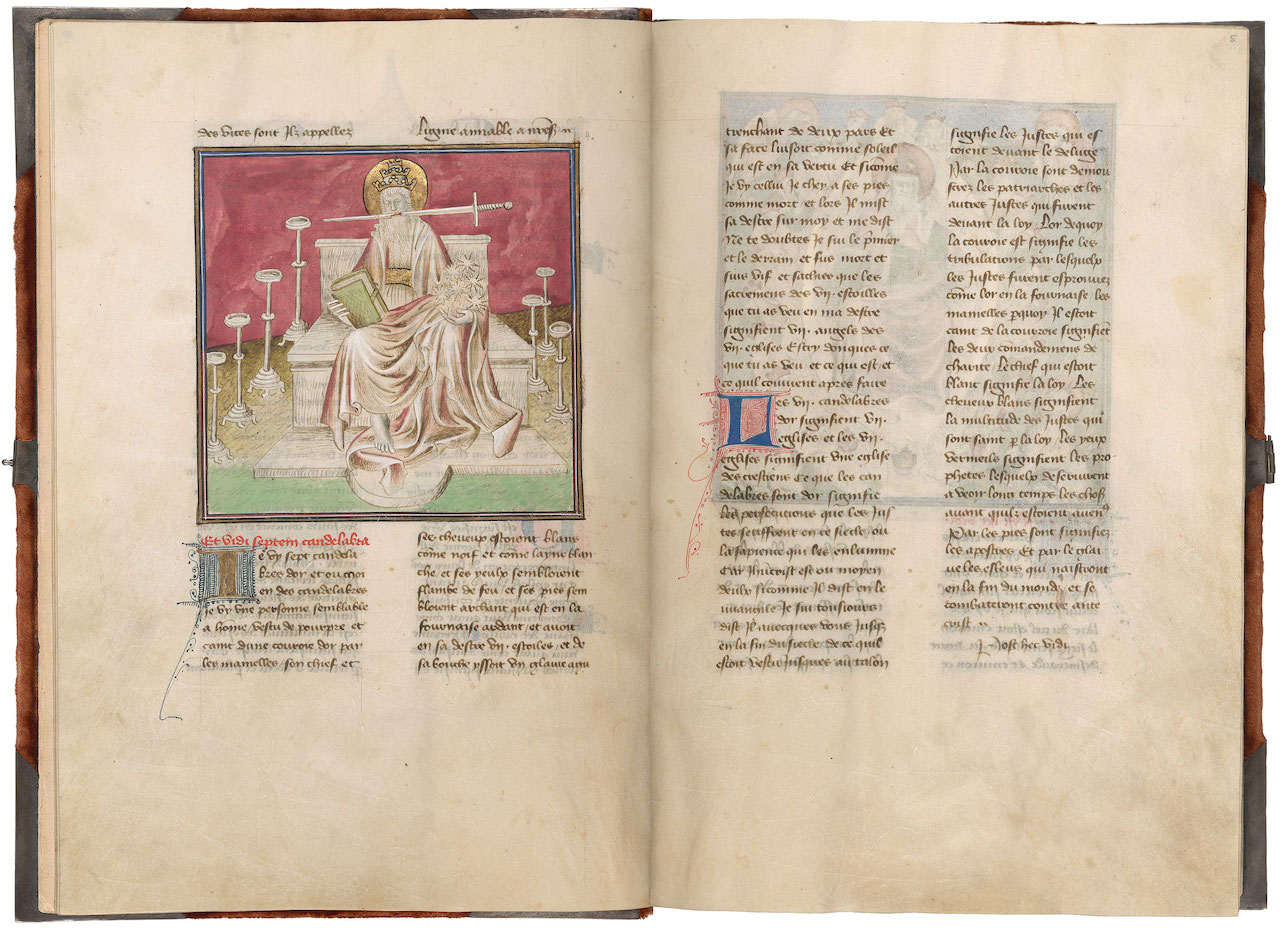 des vices sont Ilz appellez
ligne amiable a nres n
Et vidi septem candelabra
Ie vy sept candela
bres dor et ou moi
en des candelabres
Je vy vne personne semblable
a home, vestu de pourpre et
caint dune couroie dor par
les mamelles, son chief et
Ses cheueux estoient blans
come noif et come layne blan
che et ses yeulx sembloient
flambe de feu, et ses pies sem
bloient archant qui est en la
fournaise ardant, et auoit
en sa destre vii. estoiles, et de
sa bouche yssoit vn glaiue agu
5
trenchant de deux pars Et
sa face luisoit comme soleil
qui est en sa vertu Et sicome
Je vy cellui Je chey a ses pies
comme mort, et lors Il mist
sa destre sur moy et me dist
Ne te doubtes Je sui le pmier
et le derrain et fus mort et
suis vif et saches que les
sacremens des vii. estoilles
que tu as veu en ma destre
signifient vii. angels des
vii. eglises Escry donques ce
que tu as veu, et ce qui est, et
ce quil couuient apres faire
Les vii. candelabres
dor signifient vii.
eglises et les vii.
eglises signifient vne eglise
des crestiens Ce que les can
delabres sont dor signifie
les persecutions que les Jus
tes seuffrent en ce siecle, ou
la sapience qui les enlumine
Car Jhucrist est ou moyen
deulx sicomme Il dist en le
uuangile Je sui tousiours
dist Il auecques vous Jusqz
en la fin du siecle, de ce quil
estoit vestu Jusques au talon
signifie les Justes qui es
toient deuant le deluge
Par la couroie sont demon
strez les patriarches et les
autres Justes qui furent
deuant la loy, Lor de quoy
la couroie est signifie les
tribulations par lesquelx
les Justes furent esprouuez
come lor en la fournaise, les
mamelles pquoy Il estoit
caint de la couroie signifiet
les deux comandemens de
charite Le chief qui estoit
blanc signifie la loy, Les
cheueux blans signifient
la multitude des Justes qui
sont saint p la loy, Les yeux
vermeils signifient les pro
phetes lesquelx deseruirent
a veoir lonc temps les chos
auant quilz estoient auen
Par les pies sont signifiez
les apostres Et par le glai
ue les esleus qui naistront
en la fin du monde, et se
combatront contre ante
crist
Post hec vidi